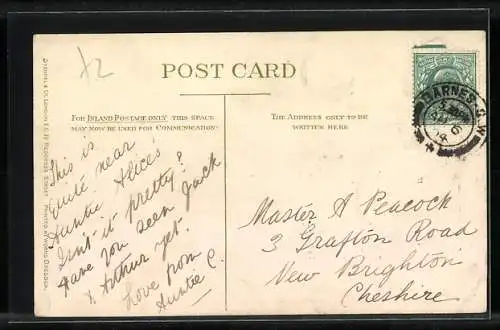 X2
POST CARD
FOR INLAND POSTAGE ONLY THIS SPACE
MAY NOW BE USED FOR COMMUNICATION.
THE ADDRESS ONLY TO BE
WRITTEN HERE
BARNES. S.W.
This is
quite near
Auntie Alice's
Isn't it pretty?
Have you seen Jack
& Arthur yet.
Love from
Auntie C.
Master A Peacock
3 Grafton Road
New Brighton
Cheshire